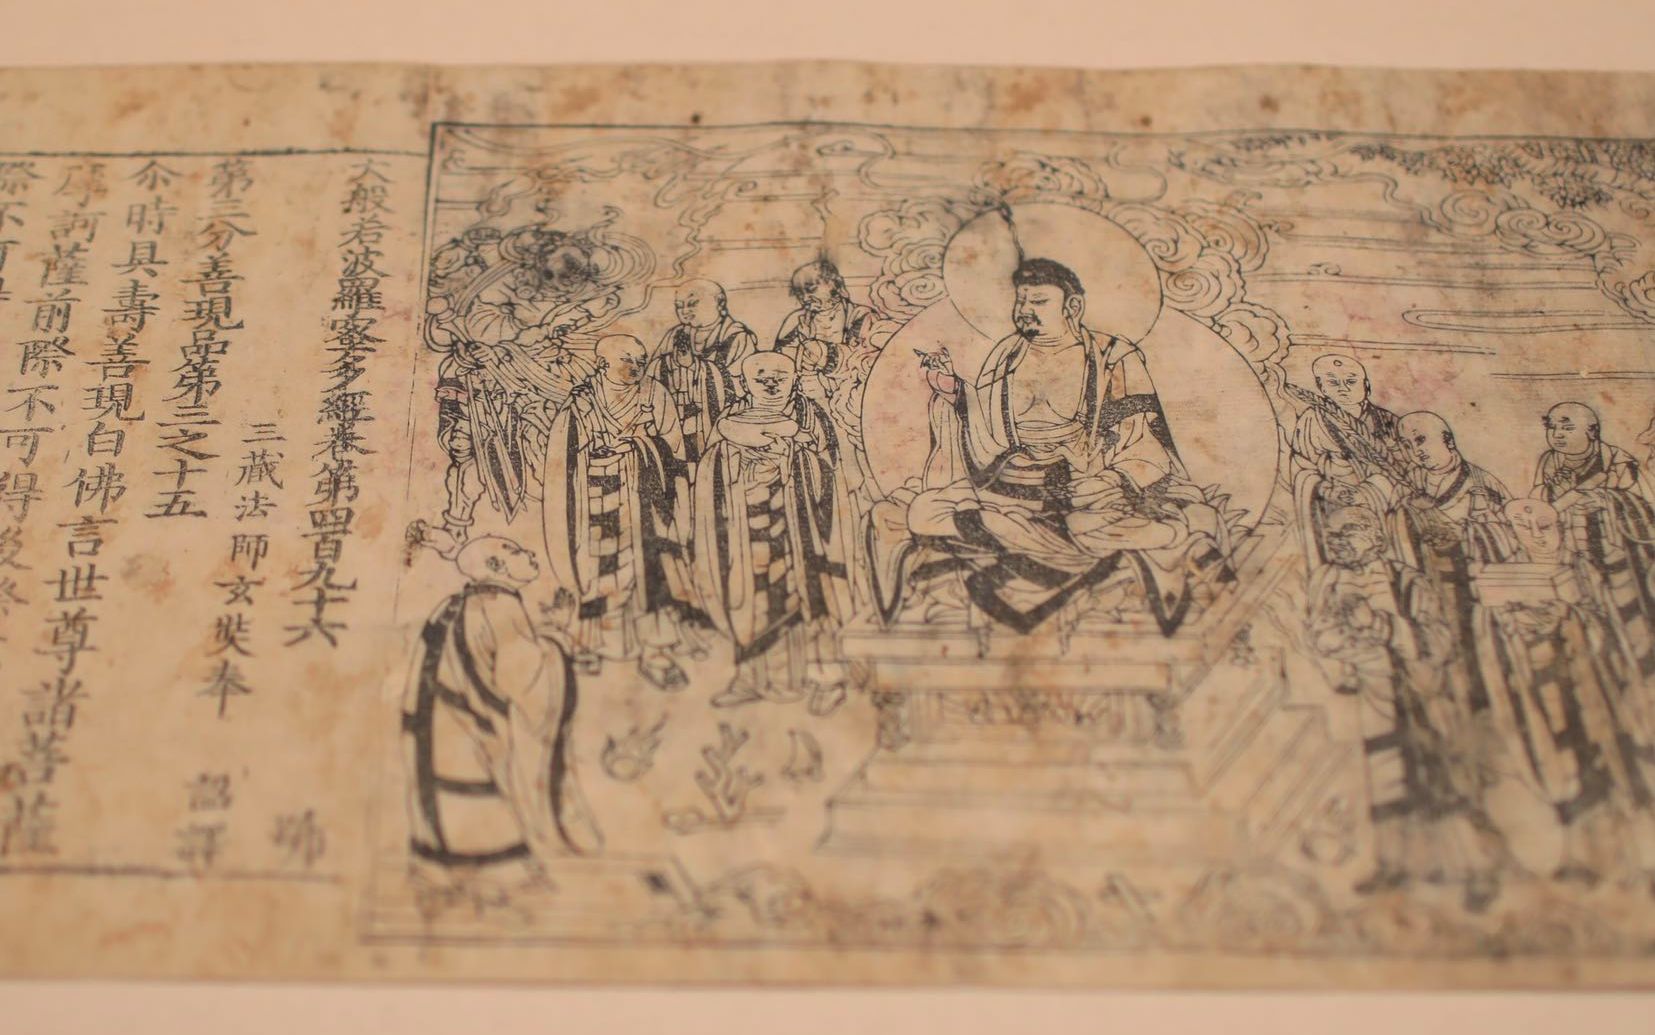 大般若波羅蜜多經卷第四百九十六
三藏法師玄奘奉 詔譯
第三分善現品第三之十五
尒時具壽善現白佛言世尊諸菩薩
摩訶薩前際不可得後際
際不可